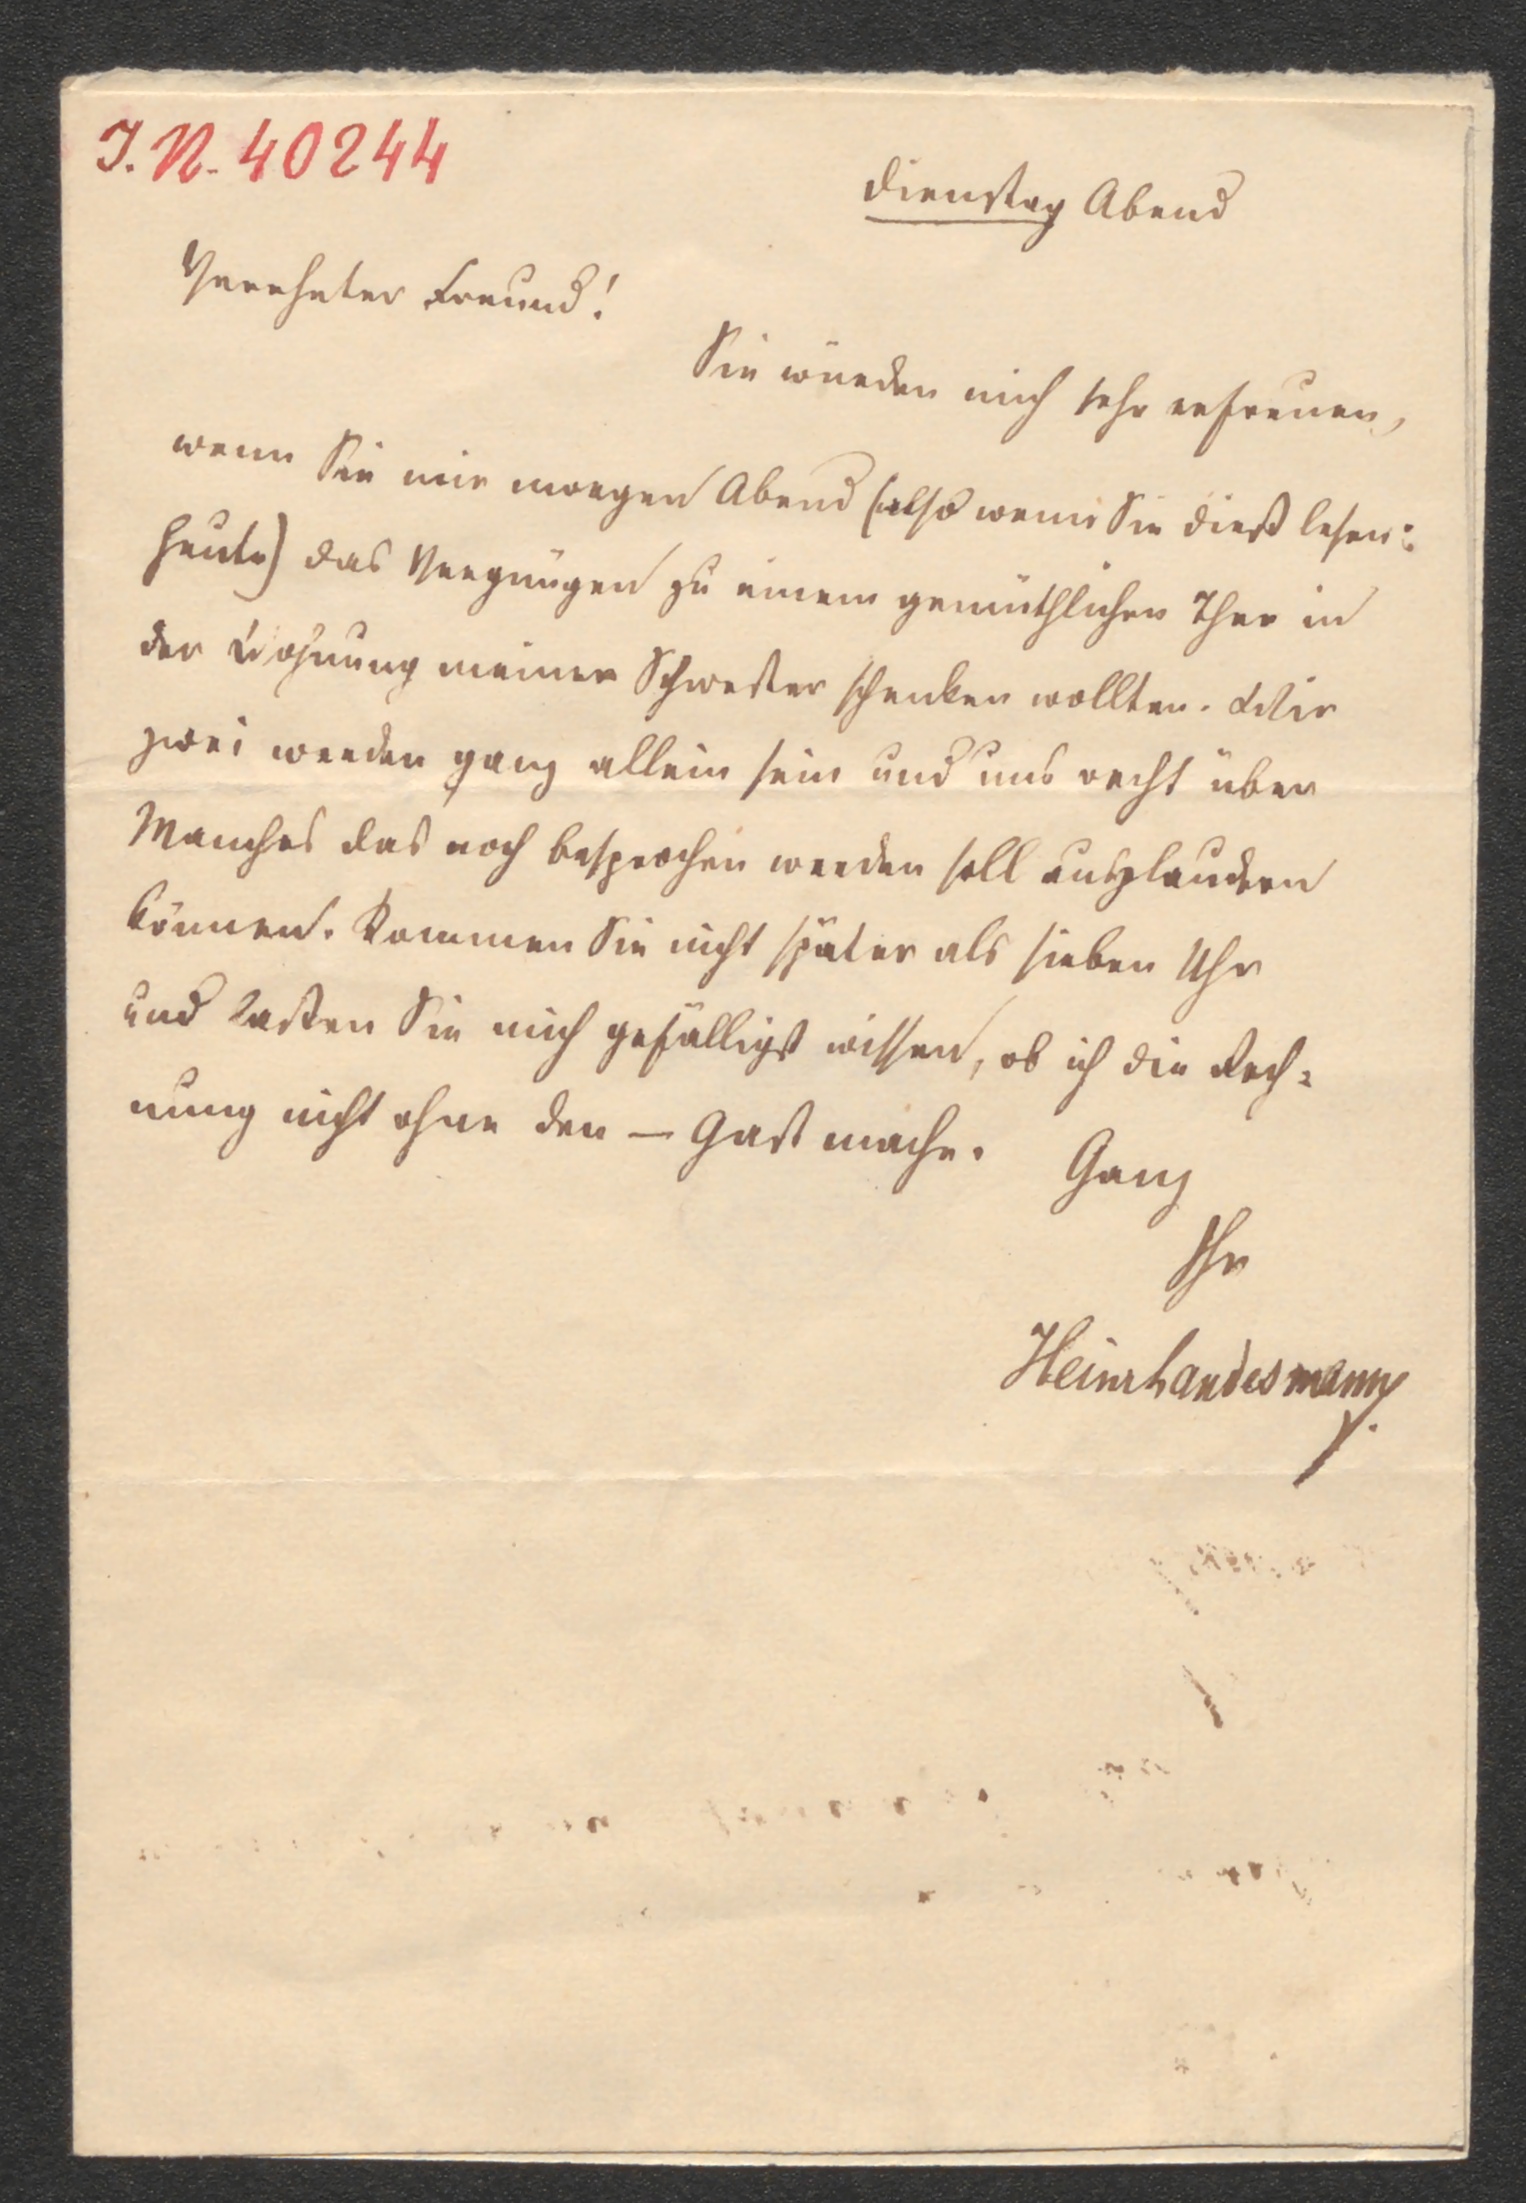 J. N. 40244
Dienstag Abend
Verehrter Freund!
Sie würden mich sehr erfreuen,
wenn Sie mir morgen Abend (also wenn Sie dieß lesen:
heute) das Vergnügen zu einem gemüthlichen Thee in
der Wohnung meiner Schwester schenken wollten. Wir
zwei werden ganz allein sein und uns recht über
Manches das noch besprochen werden soll ausplaudern
können. Kommen Sie nicht später als sieben Uhr
und laßen Sie mich gefälligst wissen, ob ich die Rech=
nung nicht ohne den — Gast mache. Ganz
Ihr
Heinr Landesmann.